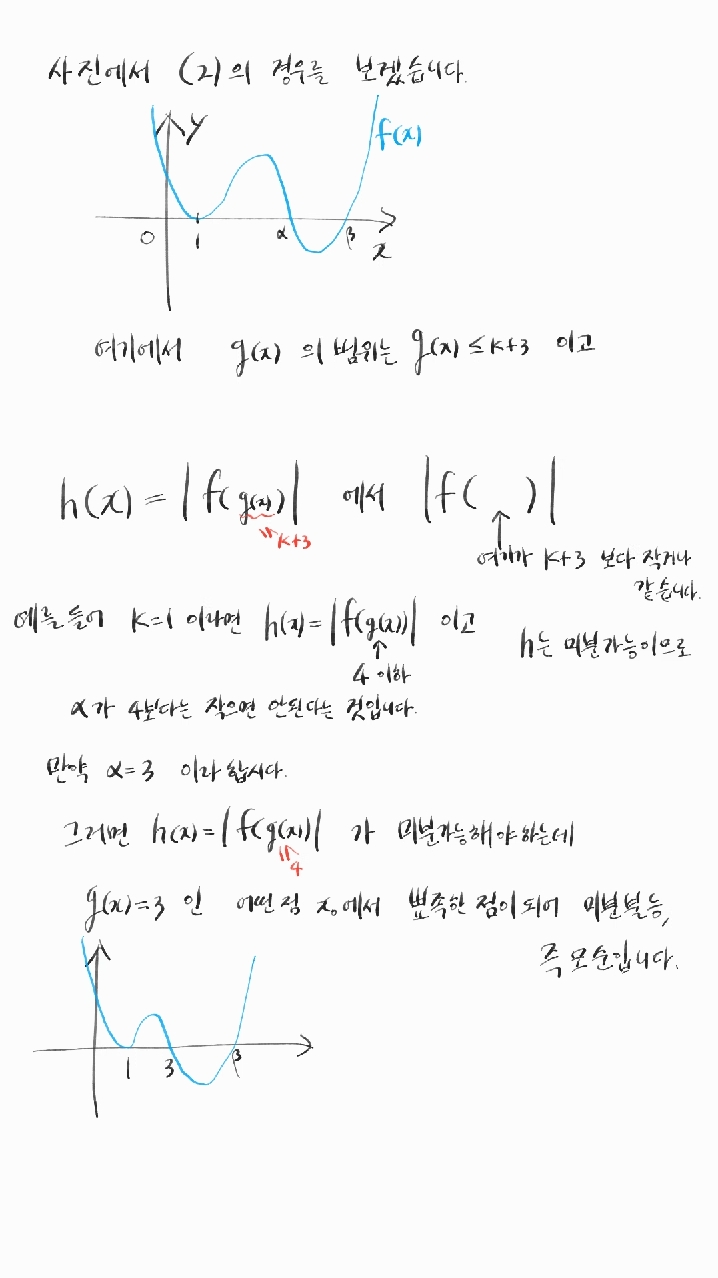 사진에서 (2)의 경우를 보겠습니다.
y
f(x)
0 1 α β x
여기에서 g(x) 의 범위는 g(x) ≤ k+3 이고
h(x) = | f( g(x) ) | 에서 | f( ) |
≤ k+3
여기가 k+3 보다 작거나
같습니다.
예를 들어 k=1 이라면 h(x) = | f(g(x)) | 이고
4 이하
h는 미분가능이므로
α가 4보다는 작으면 안된다는 것입니다.
만약 α=3 이라 합시다.
그러면 h(x) = | f(g(x)) | 가 미분가능해야 하는데
≤ 4
g(x)=3 인 어떤점 x₀에서 뾰족한 점이 되어 미분불능,
즉 모순입니다.
1 3 β